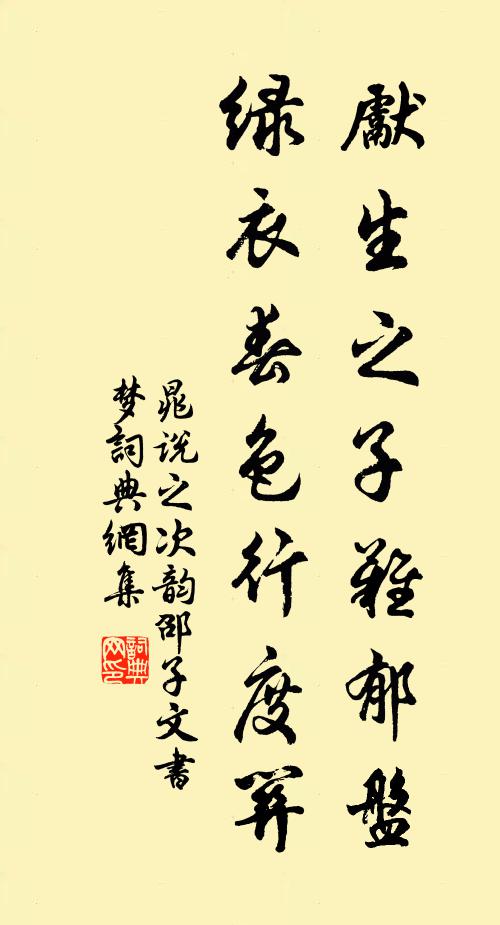 獻生之子難郁盤
綠衣春色行度關
晁説之次韵邵子文書
梦詞典網集
詞典
网印